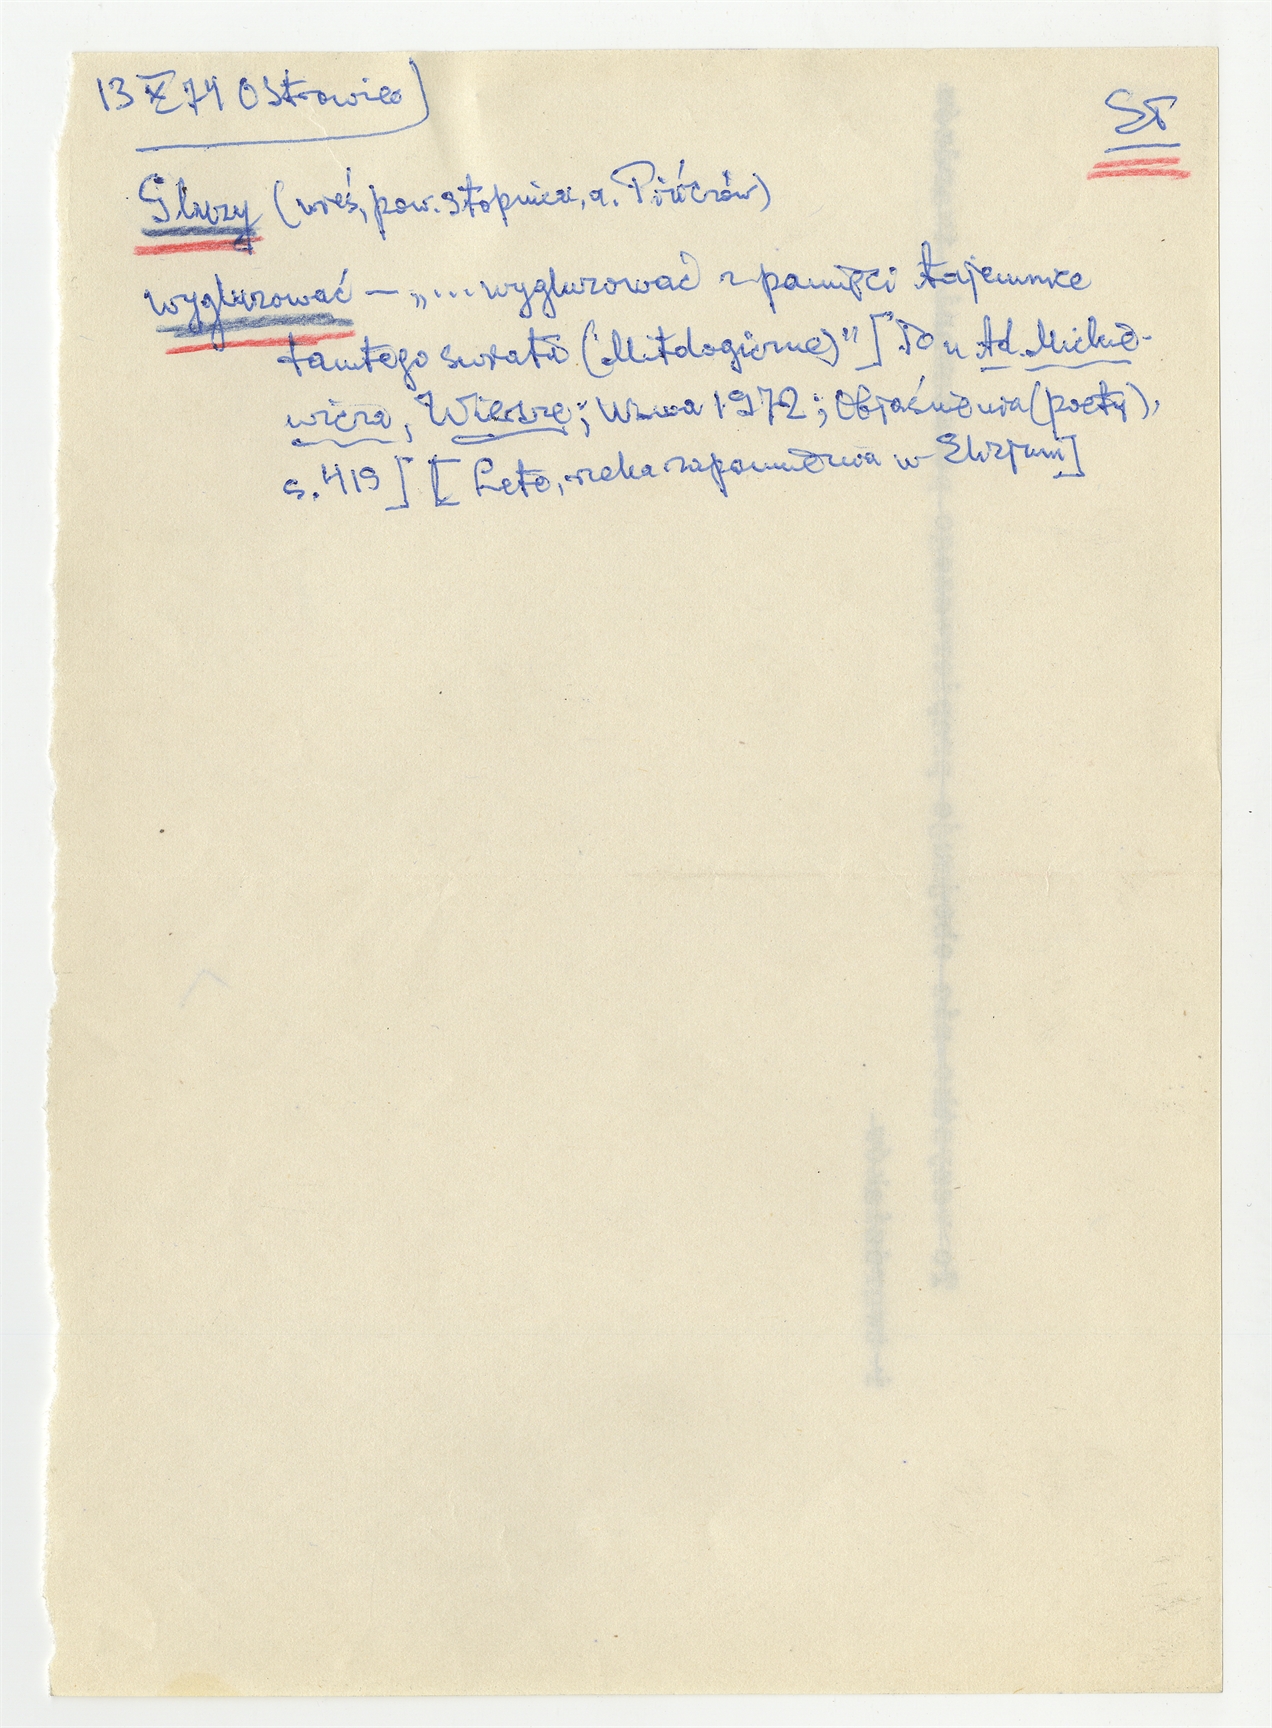 13 X 74 Ostrowiec)
ST
Gluzy (wieś, pow. Stopnica, a. Pińczów)
wygluzować – „...wygluzować z pamięci tajemnice
tamtego świata (Mitologiczne)”] To u Ad. Mickie-
wicza, Wiersze; W-wa 1972; Objaśnienia (poety),
s. 419] [Leto, rzeka zapomnienia w Elizjum]